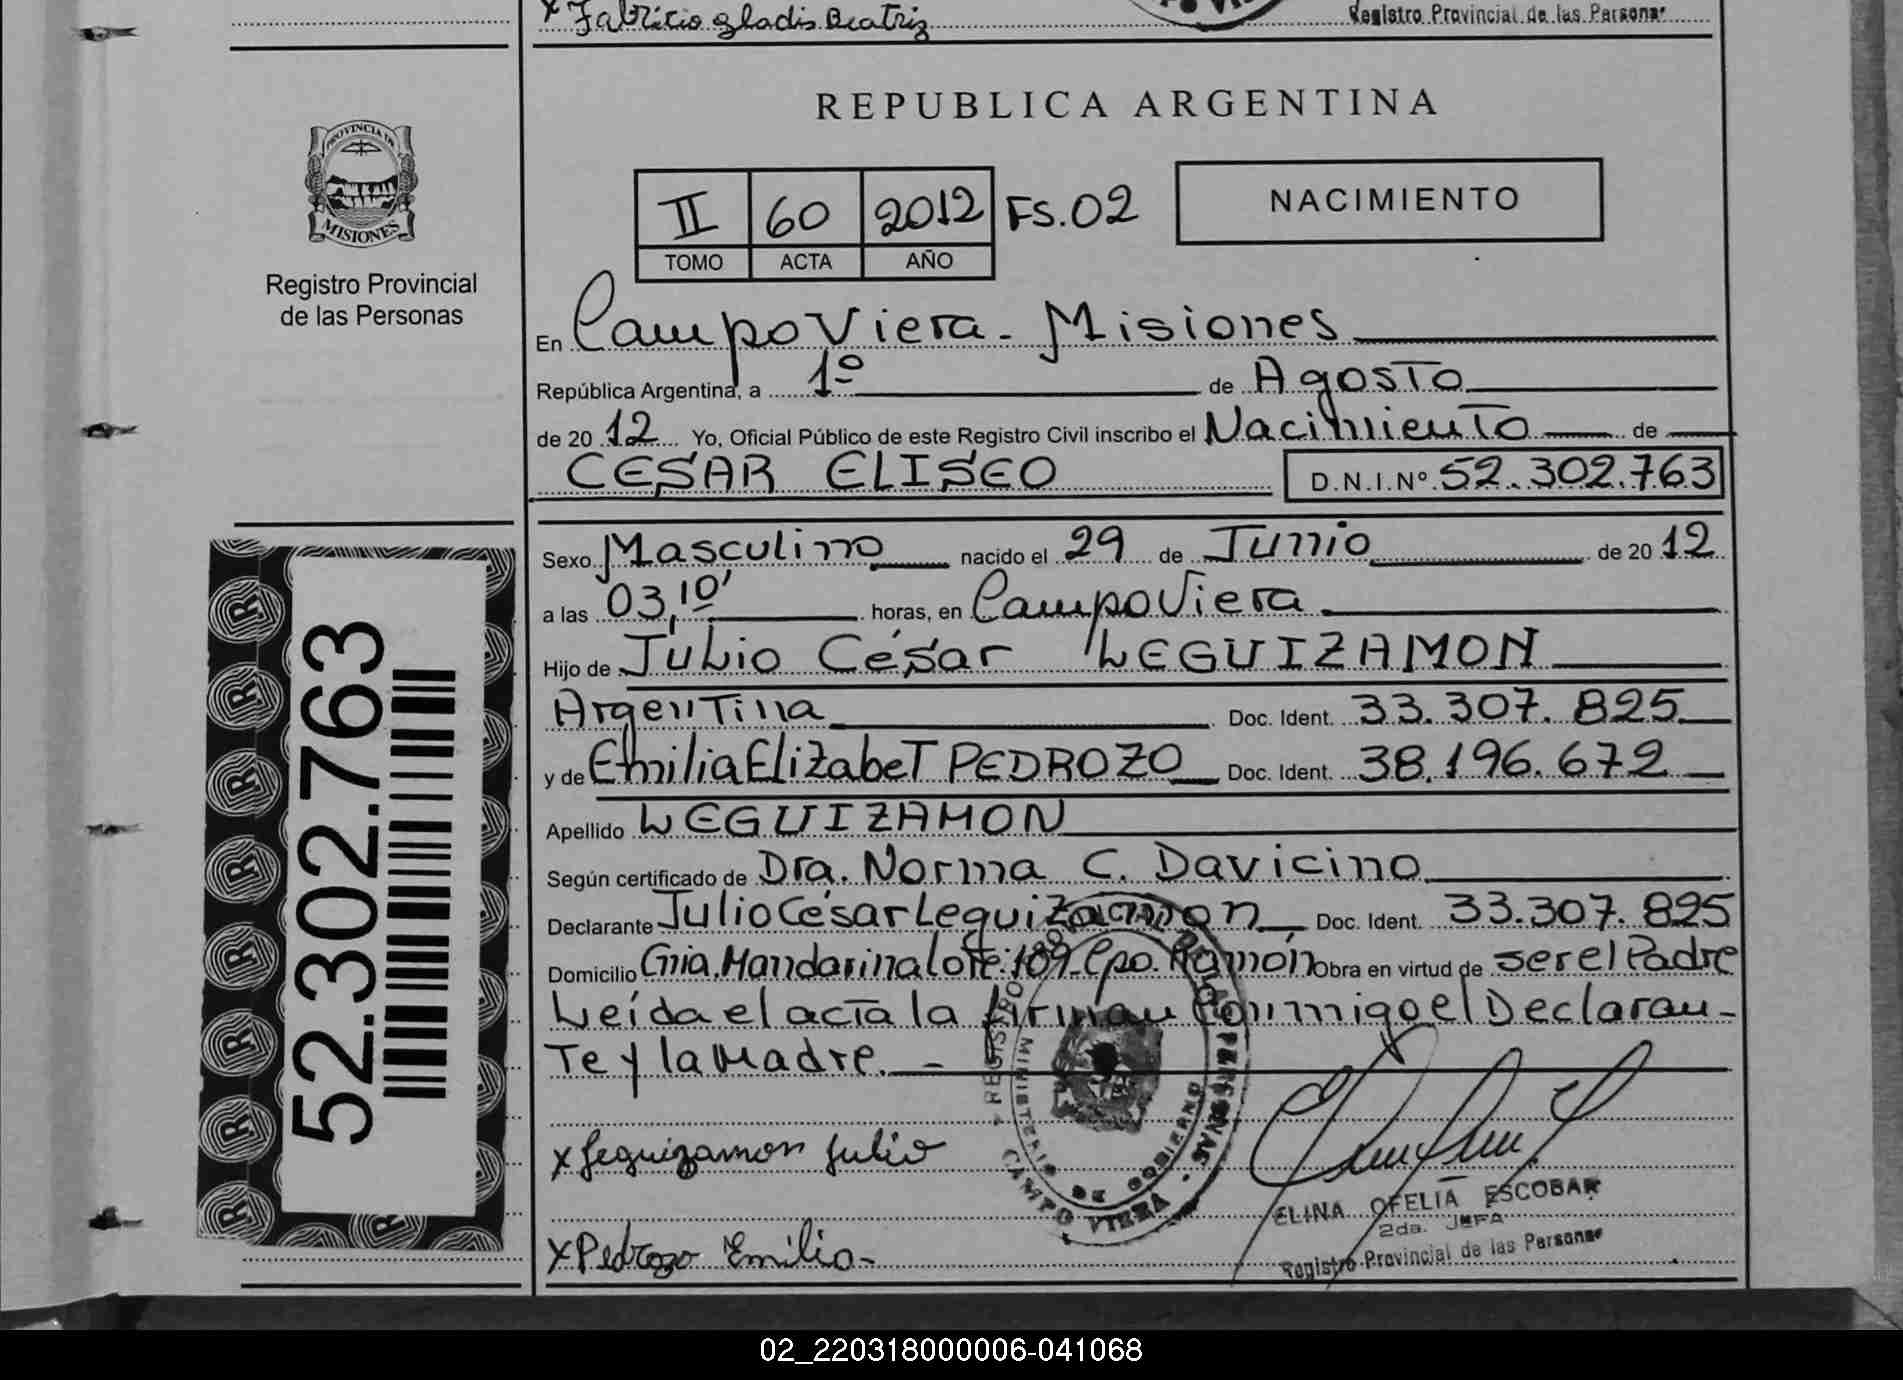 x Fabricio Gladis Beatriz
Registro Provincial de las Personas
REPUBLICA ARGENTINA
PROVINCIA DE
MISIONES
Registro Provincial
de las Personas
II 60 2012 FS.02
TOMO ACTA AÑO
NACIMIENTO
En Campo Viera - Misiones
República Argentina, a 1º de Agosto
de 2012 Yo, Oficial Público de este Registro Civil inscribo el Nacimiento de
CESAR ELISEO D.N.I.Nº 52.302.763
Sexo Masculino nacido el 29 de Junio de 2012
a las 03,10' horas, en Campo Viera
Hijo de Julio César LEGUIZAMON
Argentina Doc. Ident. 33.307.825
y de Emilia Elizabet PEDROZO Doc. Ident. 38.196.672
Apellido LEGUIZAMON
Según certificado de Dra. Norma C. Davicino
Declarante Julio César Leguizamon Doc. Ident. 33.307.825
Domicilio Cnia. Mandarina lote: 189 - Cpo. Ramón Obra en virtud de ser el Padre
Leída el acta la firman conmigo el Declaran-
te y la Madre. -
x Leguizamon Julio
x Pedrozo Emilia -
REGISTRO PERSONAS
MINISTERIO DE GOBIERNO
CAMPO VIERA
ELINA OFELIA ESCOBAR
2da. JEFA
Registro Provincial de las Personas
52.302.763
02_220318000006-041068